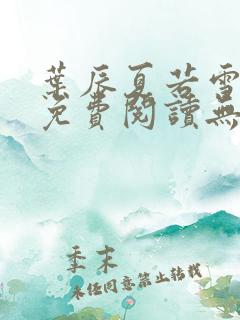 葉辰夏若雪
免費閱讀無
季末
未經同意禁止轉載